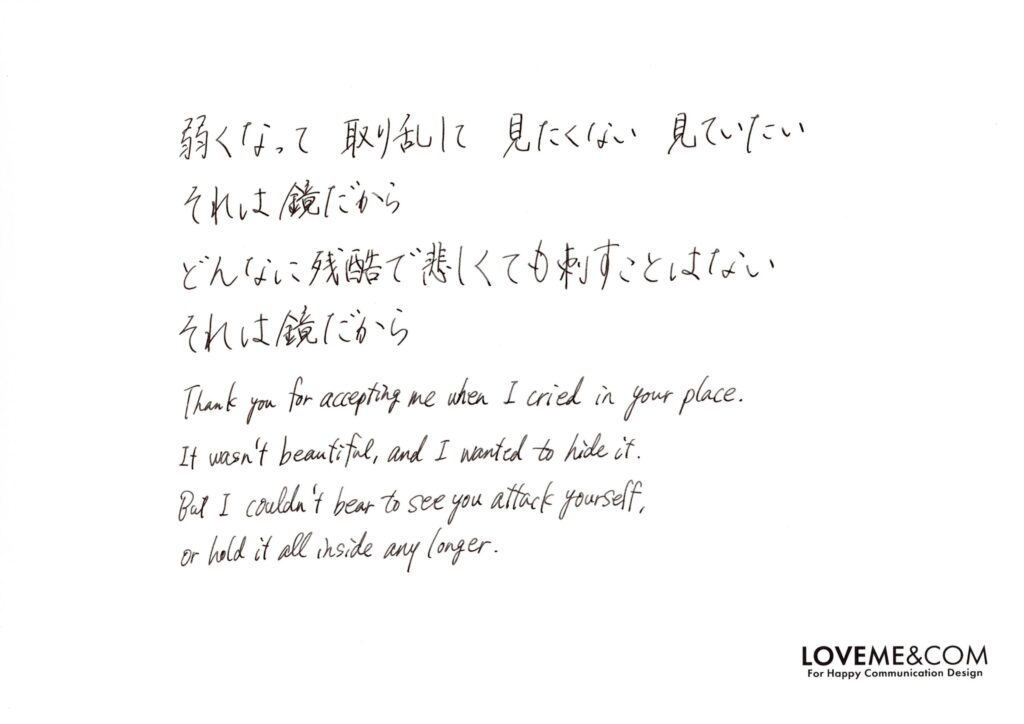 弱くなって 取り乱して 見たくない 見ていたい
それは鏡だから
どんなに残酷で悲しくても刺すことはない
それは鏡だから
Thank you for accepting me when I cried in your place.
It wasn't beautiful, and I wanted to hide it.
But I couldn't bear to see you attack yourself,
or hold it all inside any longer.
LOVEME&COM
For Happy Communication Design